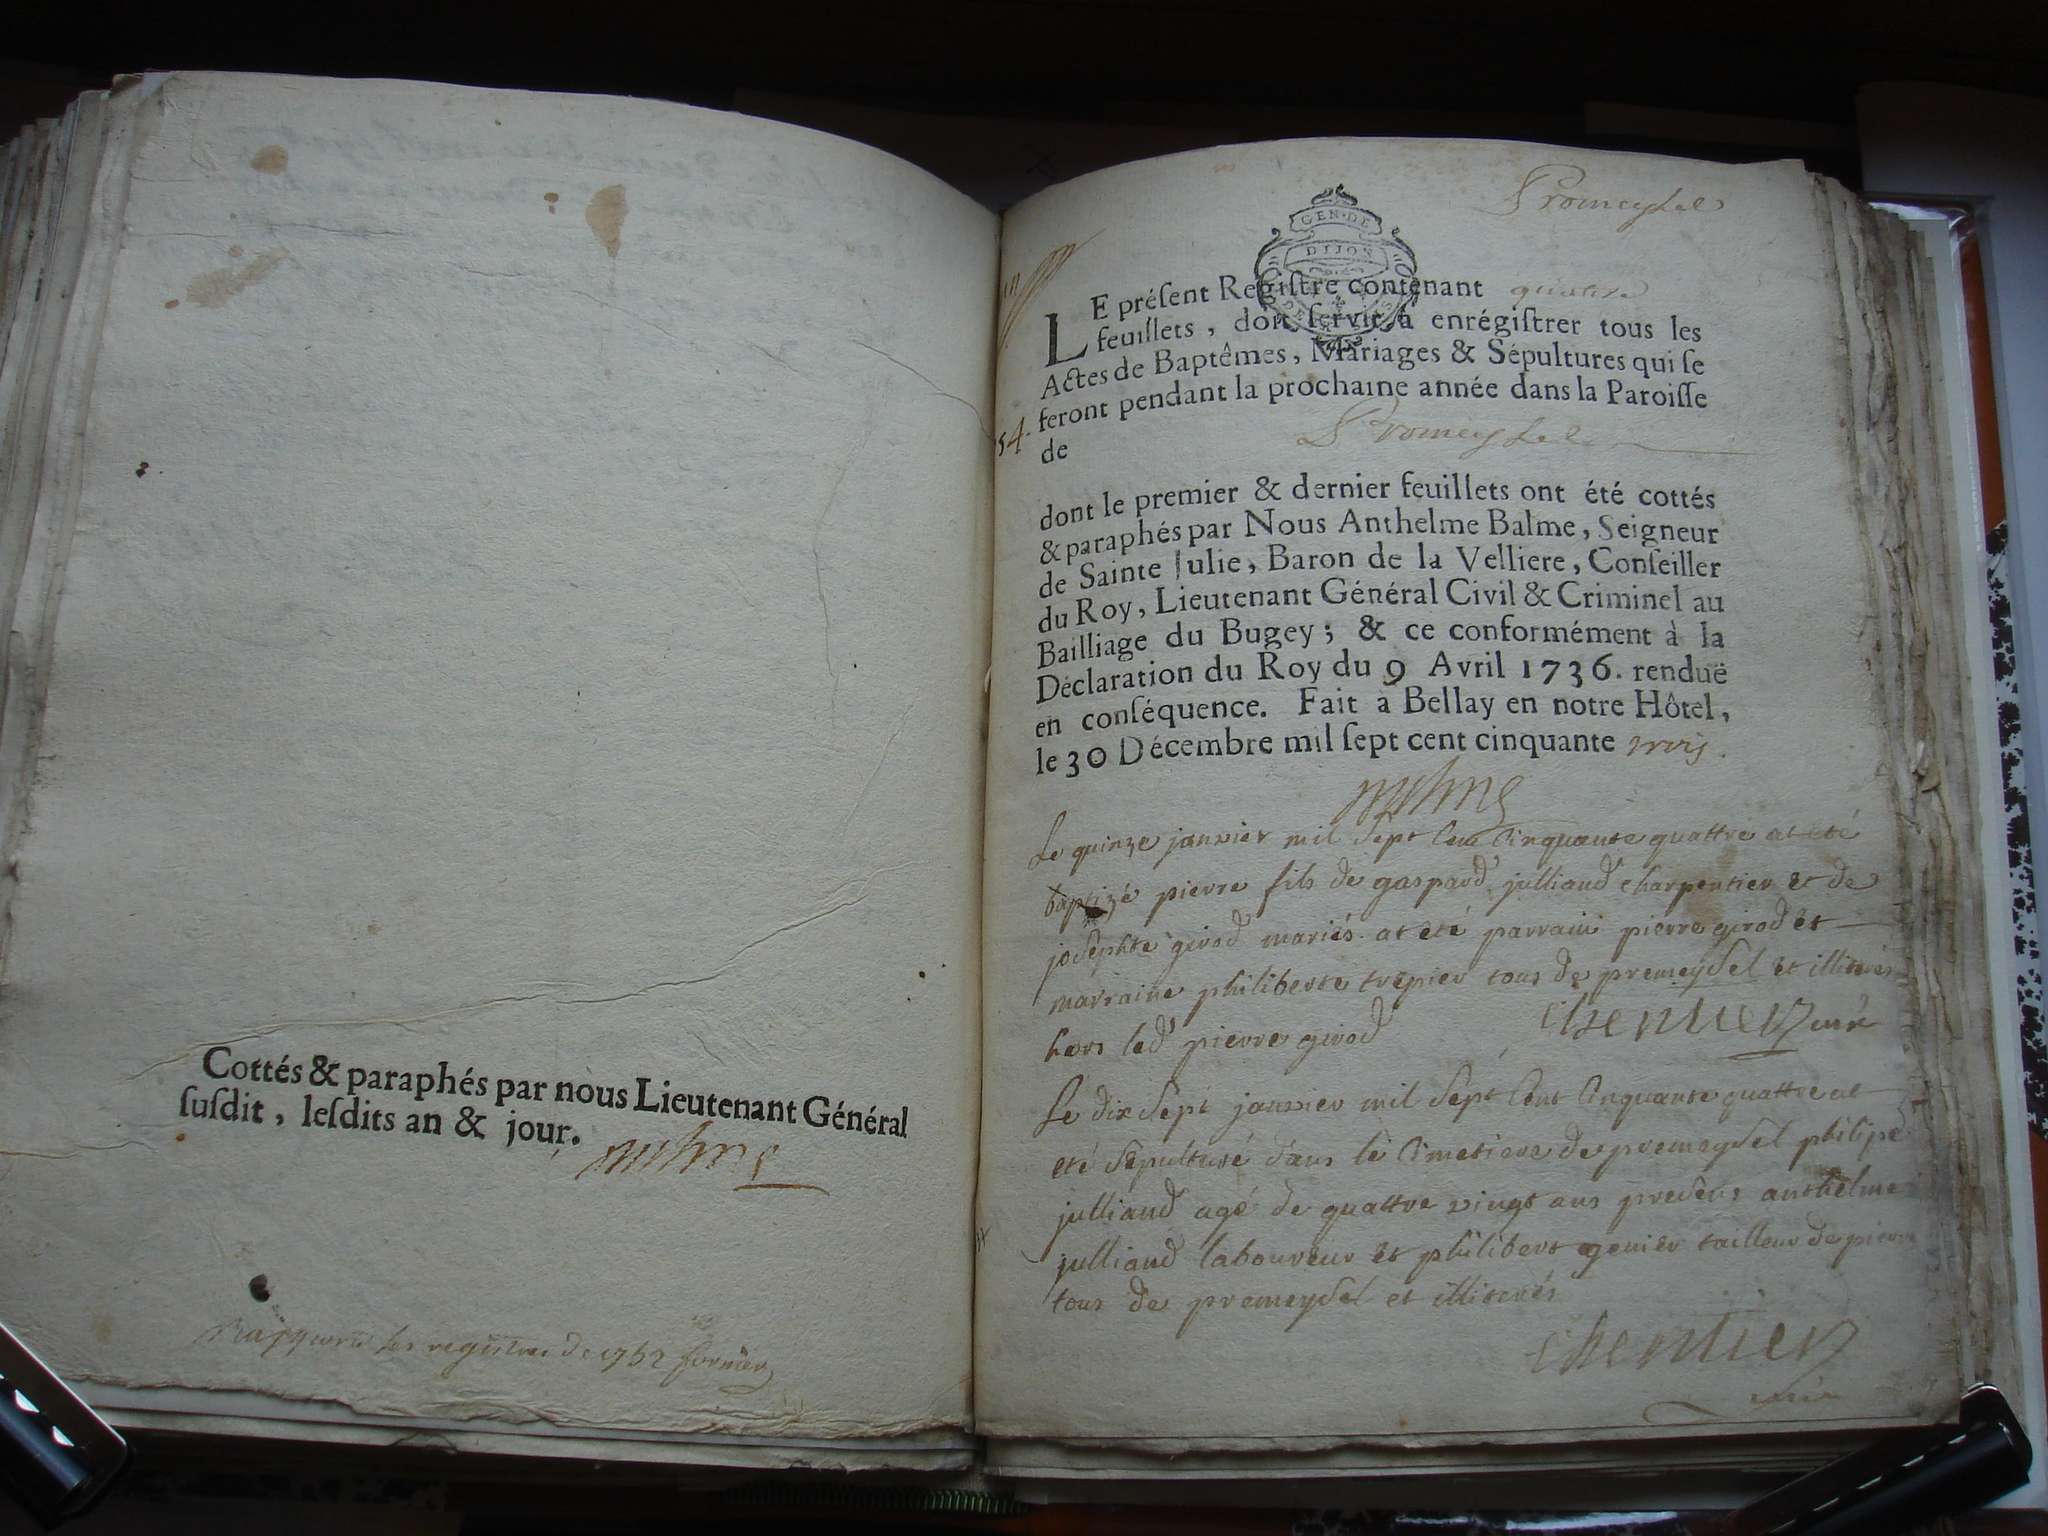 Cottés & paraphés par nous Lieutenant Général
ſuſdit, leſdits an & jour.
les registres de 1752
Promeysel
GEN·DE
DIJON
LE préſent Regiſtre contenant quatre
feuillets, doit ſervir à enrégiſtrer tous les
Actes de Baptêmes, Mariages & Sépultures qui ſe
feront pendant la prochaine année dans la Paroiſſe
54.
de Promeysel
dont le premier & dernier feuillets ont été cottés
& paraphés par Nous Anthelme Balme, Seigneur
de Sainte Julie, Baron de la Velliere, Conſeiller
du Roy, Lieutenant Général Civil & Criminel au
Bailliage du Bugey; & ce conformément à la
Déclaration du Roy du 9 Avril 1736. renduë
en conſéquence. Fait à Bellay en notre Hôtel,
le 30 Décembre mil ſept cent cinquante trois.
Le quinze janvier mil sept Cent Cinquante quattre at eté
baptizé pierre fils de gaspard julliand charpentier et de
josephte girod mariés at eté parrain pierre girod et
marraine philiberte trepier tous de premeysel et illiterés
hors led pierre girod Chentier curé
Le dix sept janvier mil sept Cent Cinquante quattre at
eté sepulturé dans le Cimetiere de premeysel philipe
julliand agé de quattre vingt ans presens anthelme
julliand laboureur et philibert genier tailleur de pierre
tous de premeysel et illiterés
Chentier
curé